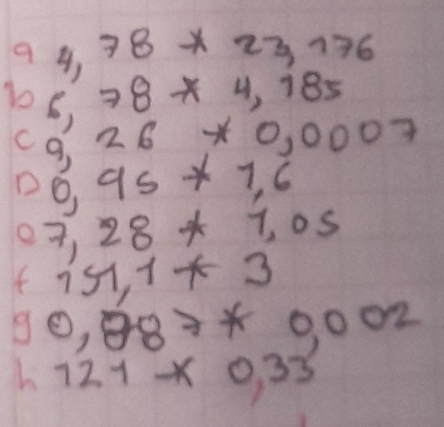 a 4,78 * 23,176
b 6,78 * 4,185
c 9,26 * 0,0007
D 0,95 * 1,6
e 7,28 * 1,05
f 151,1 * 3
g 0,087 * 0,002
h 121 * 0,33